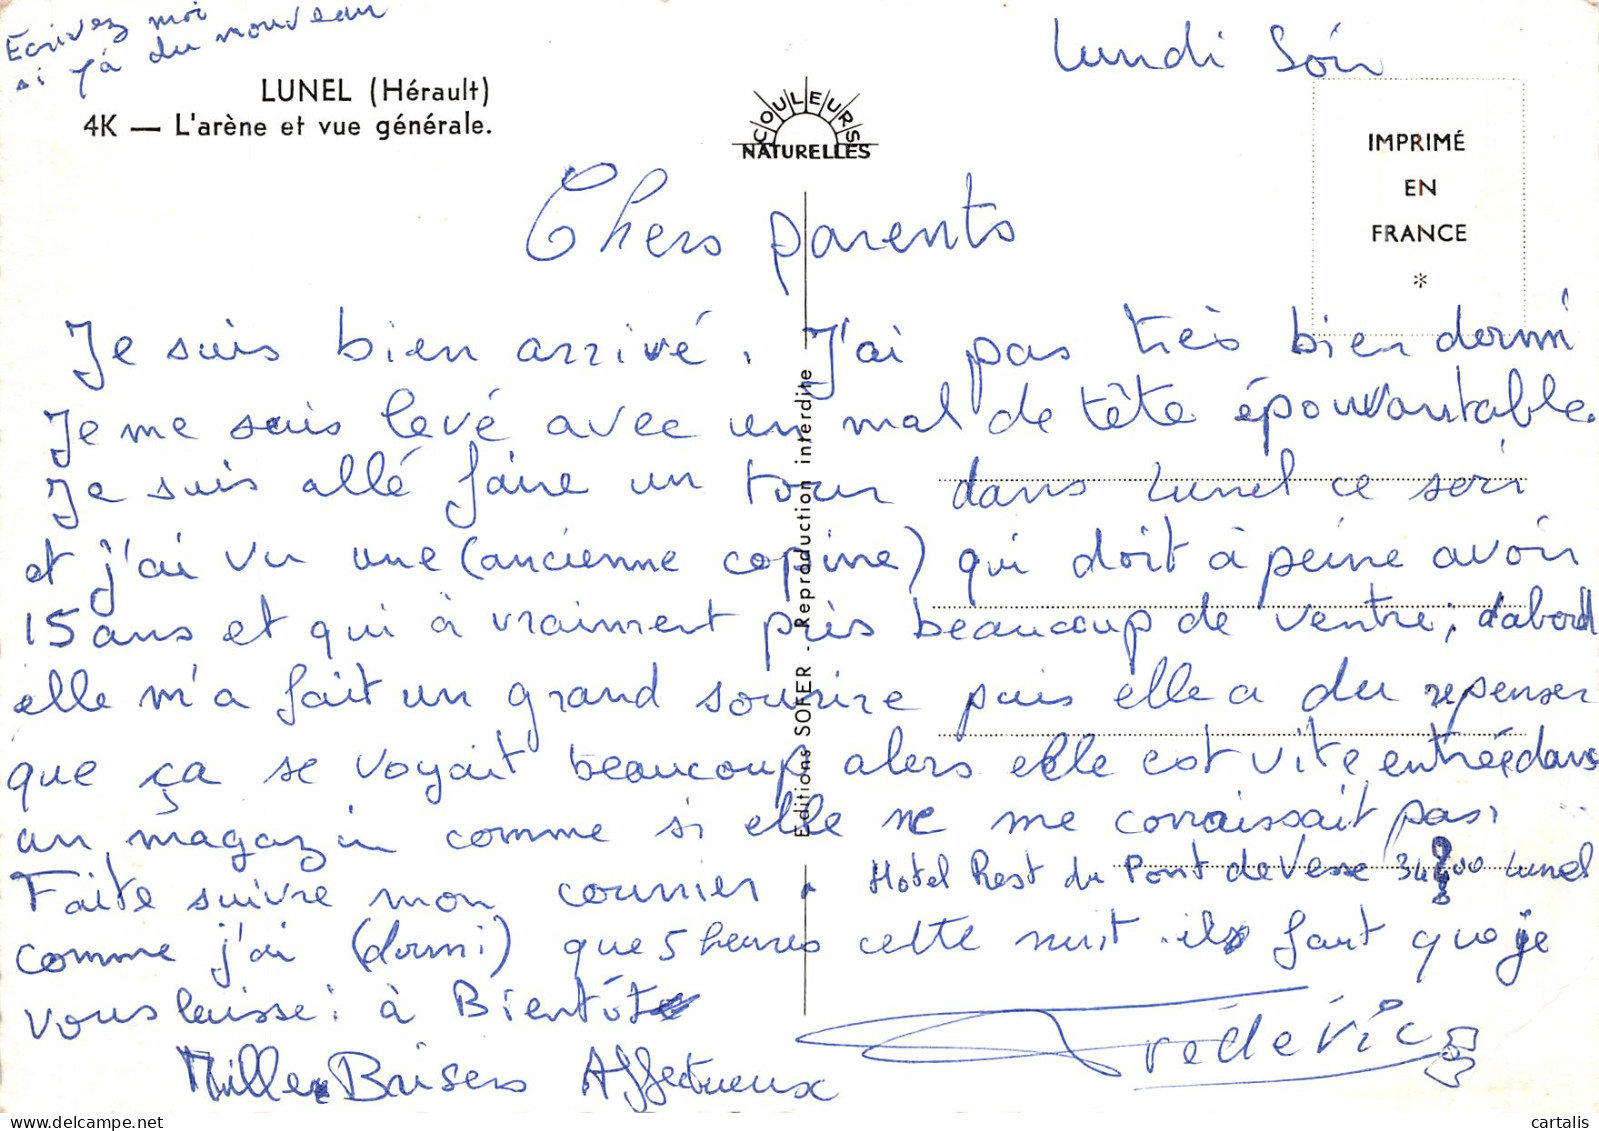 Ecrivez moi
si y'à du nouveau
lundi Soir
LUNEL (Hérault)
4K — L'arène et vue générale.
COULEURS
NATURELLES
IMPRIMÉ
EN
FRANCE
*
Chers parents
Je suis bien arrivé. J'ai pas très bien dormi
Je me suis levé avec un mal de tête épouvantable.
Je suis allé faire un tour dans Lunel ce soir
et j'ai vu une (ancienne copine) qui doit à peine avoir
15 ans et qui à vraiment près beaucoup de ventre; d'abord
elle m'a fait un grand sourire puis elle a du repenser
que ça se voyait beaucoup alors elle est vite entrée dans
un magazin comme si elle ne me conaissait pas.
Faite suivre mon courrier. Hotel Rest du Pont de Vesse 34400 Lunel
comme j'ai (dormi) que 5 heures cette nuit il faut que je
vous laisse: à Bientôt
Mille Baisers Affectueux
Frédéric
Editions SOFER - Reproduction interdite
cartalis.com